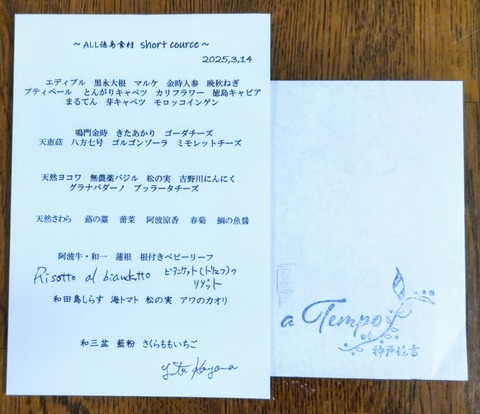 ～ ALL徳島食材 short cource ～
2025,3,14
エディブル 黒永大根 マルケ 金時人参 晩秋ねぎ
プティベール とんがりキャベツ カリフラワー 徳島キャビア
まるてん 芽キャベツ モロッコインゲン
鳴門金時 きたあかり ゴーダチーズ
天恵菇 八方七号 ゴルゴンゾーラ ミモレットチーズ
天然ヨコワ 無農薬バジル 松の実 吉野川にんにく
グラナパダーノ ブッラータチーズ
天然さわら 蕗の薹 蕾菜 阿波涼香 春菊 鯛の魚醤
阿波牛・和一 蓮根 根付きベビーリーフ
Risotto al bianchetto ビアンケット(トリュフ)の
リゾット
和田島しらす 海トマト 松の実 アワのカオリ
和三盆 藍粉 さくらももいちご
a Tempo
神戸住吉